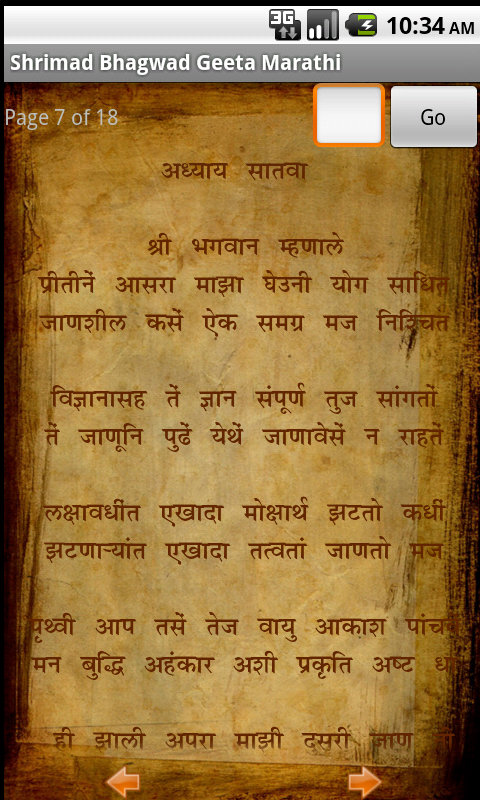 3G
10:34 AM
Shrimad Bhagwad Geeta Marathi
Page 7 of 18
Go
अध्याय सातवा
श्री भगवान म्हणाले
प्रीतीनें आसरा माझा घेउनी योग साधित
जाणशील कसें ऐक समग्र मज निश्चित
विज्ञानासह तें ज्ञान संपूर्ण तुज सांगतों
तें जाणूनि पुढें येथें जाणावेसें न राहतें
लक्षावधींत एखादा मोक्षार्थ झटतो कधीं
झटणाऱ्यांत एखादा तत्वतां जाणतो मज
पृथ्वी आप तसें तेज वायु आकाश पांच
मन बुद्धि अहंकार अशी प्रकृति अष्ट
ही झाली अपरा माझी दुसरी जाण